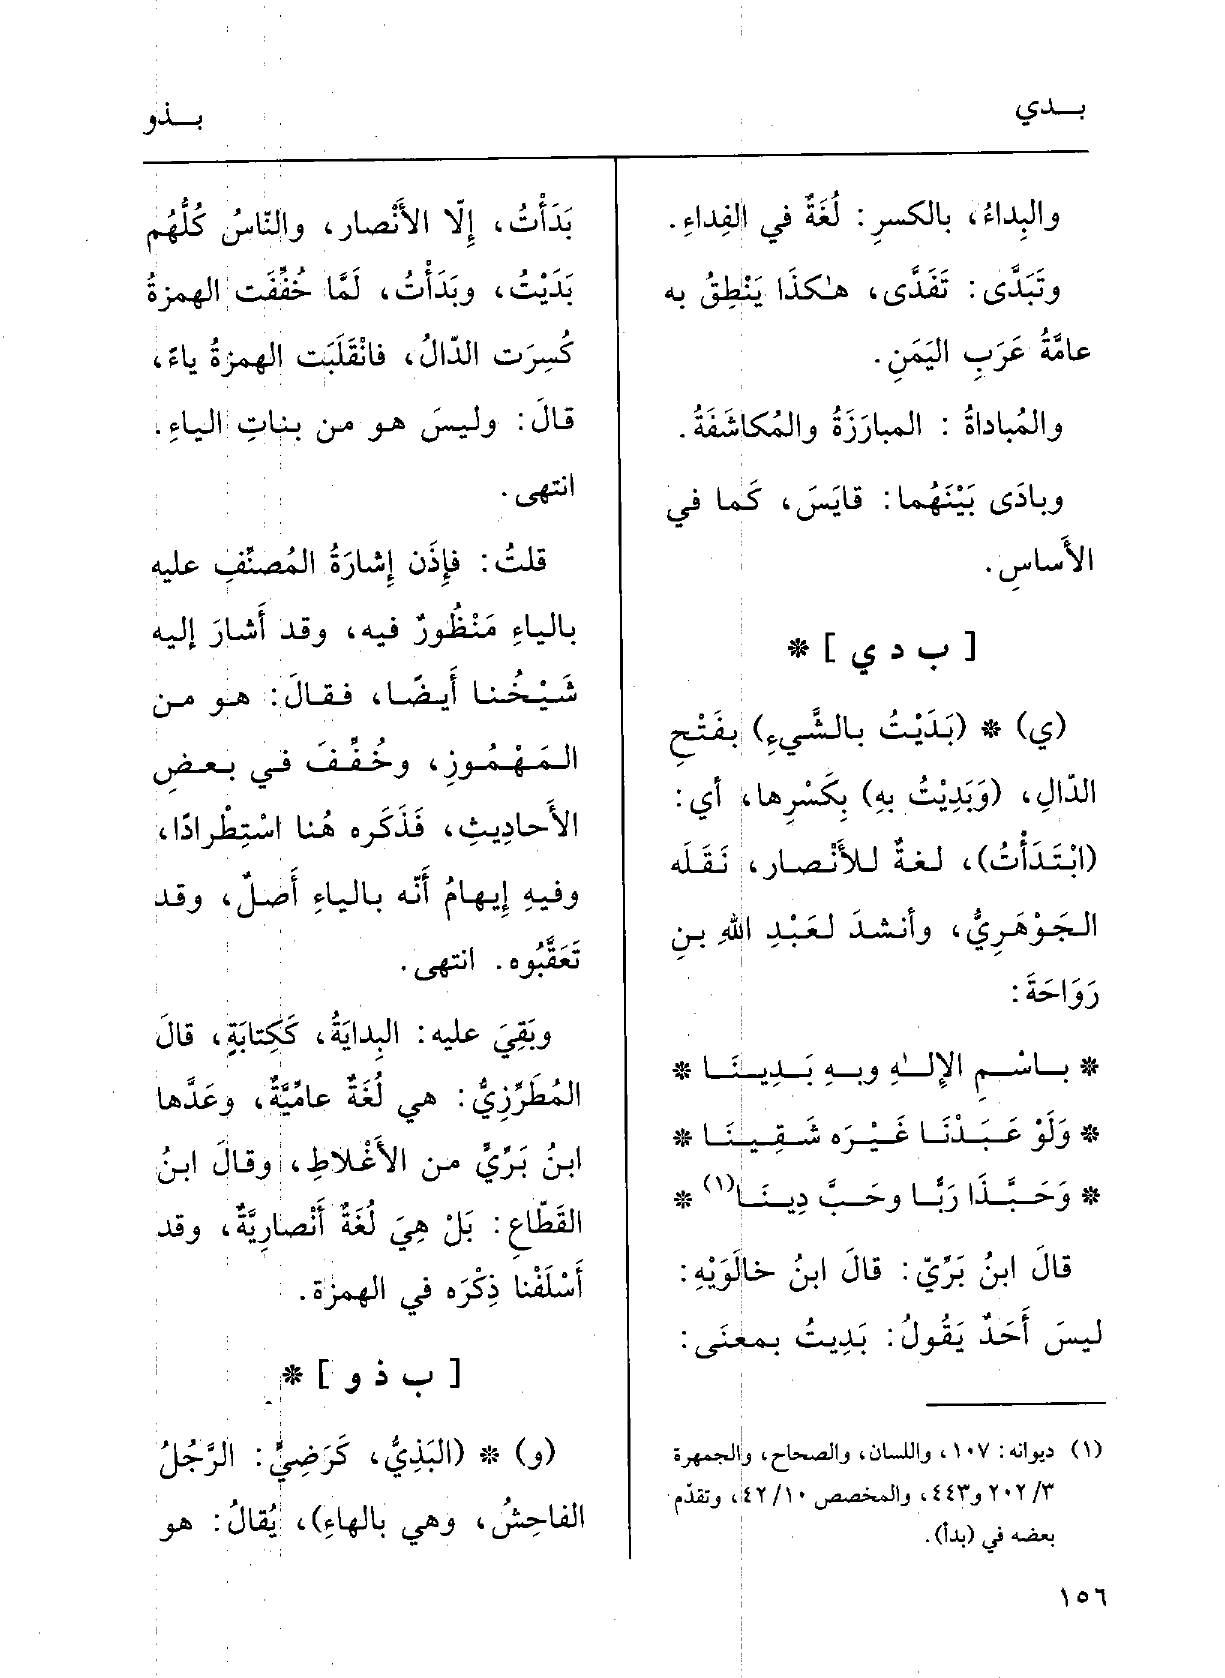 بـدي
بـذو
والبِداءُ، بالكسرِ: لُغَةٌ في الفِداءِ.
وتَبَدَّى: تَفَدَّى، هـٰكذَا يَنْطِقُ به
عامَّةُ عَرَبِ اليَمَنِ.
والمُباداةُ : المبارَزَةُ والمُكاشَفَةُ.
وبادَى بَيْنَهُما: قايَسَ، كَما في
الأَساسِ.
[ ب د ي ] *
(ي) * (بَدَيْتُ بالشَّيءِ) بفَتْحِ
الدّالِ، (وَبَدِيْتُ بهِ) بِكَسْرِها، أي:
(ابْتَدَأْتُ)، لغةٌ للأَنْصار، نَقَلَه
الجَوْهَرِيُّ، وأنشدَ لعَبْدِ اللهِ بنِ
رَوَاحَةَ:
* بـاسْـمِ الإِلـٰهِ وبـهِ بَـدِيـنَـا *
* وَلَوْ عَـبَـدْنَـا غَـيْـرَه شَـقِـينَـا *
* وَحَـبَّـذَا رَبًّـا وحَـبَّ دِيـنَـا(١) *
قالَ ابنُ بَرِّيّ: قالَ ابنُ خالَوَيْهِ:
ليسَ أَحَدٌ يَقُولُ: بَدِيتُ بمعنَى:
(١) ديوانه: ١٠٧، واللسان، والصحاح، والجمهرة
٣/ ٢٠٢ و٤٤٣، والمخصص ١٠/ ٤٢، وتقدّم
بعضه في (بدأ).
بَدَأْتُ، إِلّا الأَنْصار، والنّاسُ كُلُّهُم
بَدَيْتُ، وبَدَأْتُ، لَمَّا خُفِّفَت الهمزةُ
كُسِرَت الدّالُ، فانْقَلَبَت الهمزةُ ياءً،
قالَ: وليسَ هو من بناتِ الياءِ.
انتهى.
قلتُ: فإِذَن إِشارَةُ المُصنِّفِ عليه
بالياءِ مَنْظُورٌ فيه، وقد أَشارَ إليه
شَيْخُنا أَيضًا، فقالَ: هو من
المَهْمُوزِ، وخُفِّفَ في بعضِ
الأَحادِيثِ، فَذَكَره هُنا اسْتِطْرادًا،
وفيهِ إِيهامُ أَنّه بالياءِ أَصلٌ، وقد
تَعَقَّبُوه. انتهى.
وبَقِيَ عليه: البِدايَةُ، كَكِتابَةٍ، قالَ
المُطَرِّزِيُّ: هي لُغَةٌ عامِّيَّةٌ، وعَدَّها
ابنُ بَرِّيٍّ من الأَغْلاطِ، وقالَ ابنُ
القَطّاعِ: بَلْ هِيَ لُغَةٌ أَنْصارِيَّةٌ، وقد
أَسْلَفْنا ذِكْرَه في الهمزة.
[ ب ذ و ] *
(و) * (البَذِيُّ، كَرَضِيٍّ: الرَّجُلُ
الفاحِشُ، وهي بالهاءِ)، يُقالُ: هو
١٥٦